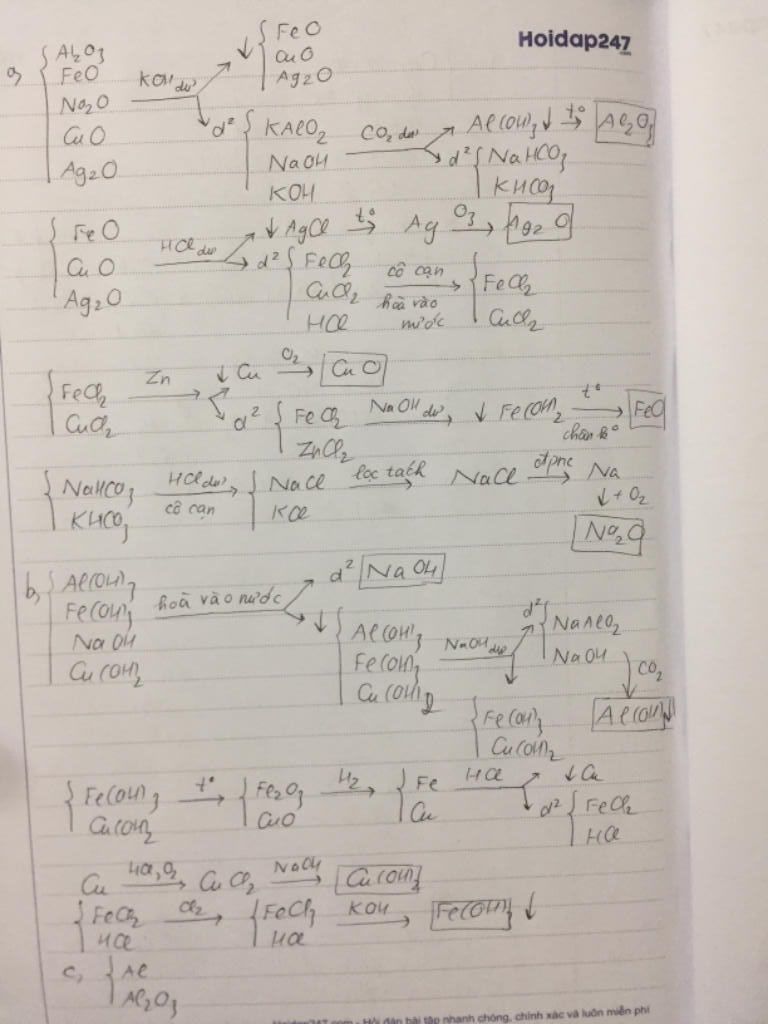 Hoidap247
a, { Al2O3 FeO Na2O CuO Ag2O —KOH dư→ ↓ { FeO CuO Ag2O
d² { KAlO2 NaOH KOH —CO2 dư→ Al(OH)3↓ —t°→ Al2O3
d² { NaHCO3 KHCO3
{ FeO CuO Ag2O —HCl dư→ ↓ AgCl —t°→ Ag —O3→ Ag2O
d² { FeCl2 CuCl2 HCl —cô cạn hoà vào nước→ { FeCl2 CuCl2
{ FeCl2 CuCl2 —Zn→ ↓ Cu —O2→ CuO
d² { FeCl2 ZnCl2 —NaOH dư→ ↓ Fe(OH)2 —t° chân k°→ FeO
{ NaHCO3 KHCO3 —HCl dư cô cạn→ { NaCl KCl —lọc tách→ NaCl —đpnc→ Na
↓ + O2
Na2O
b, { Al(OH)3 Fe(OH)3 NaOH Cu(OH)2 —hoà vào nước→ d² NaOH
↓ { Al(OH)3 Fe(OH)3 Cu(OH)2 —NaOH dư→ d² { NaAlO2 NaOH
↓ CO2
{ Fe(OH)3 Cu(OH)2
Al(OH)3↓
{ Fe(OH)3 Cu(OH)2 —t°→ { Fe2O3 CuO —H2→ { Fe Cu —HCl→ ↓ Cu
d² { FeCl2 HCl
Cu —HCl, O2→ CuCl2 —NaOH→ Cu(OH)2
{ FeCl2 HCl —Cl2→ { FeCl3 HCl —KOH→ Fe(OH)3 ↓
c, { Al Al2O3
Hoidap247.com - Hỏi đáp bài tập nhanh chóng, chính xác và luôn miễn phí